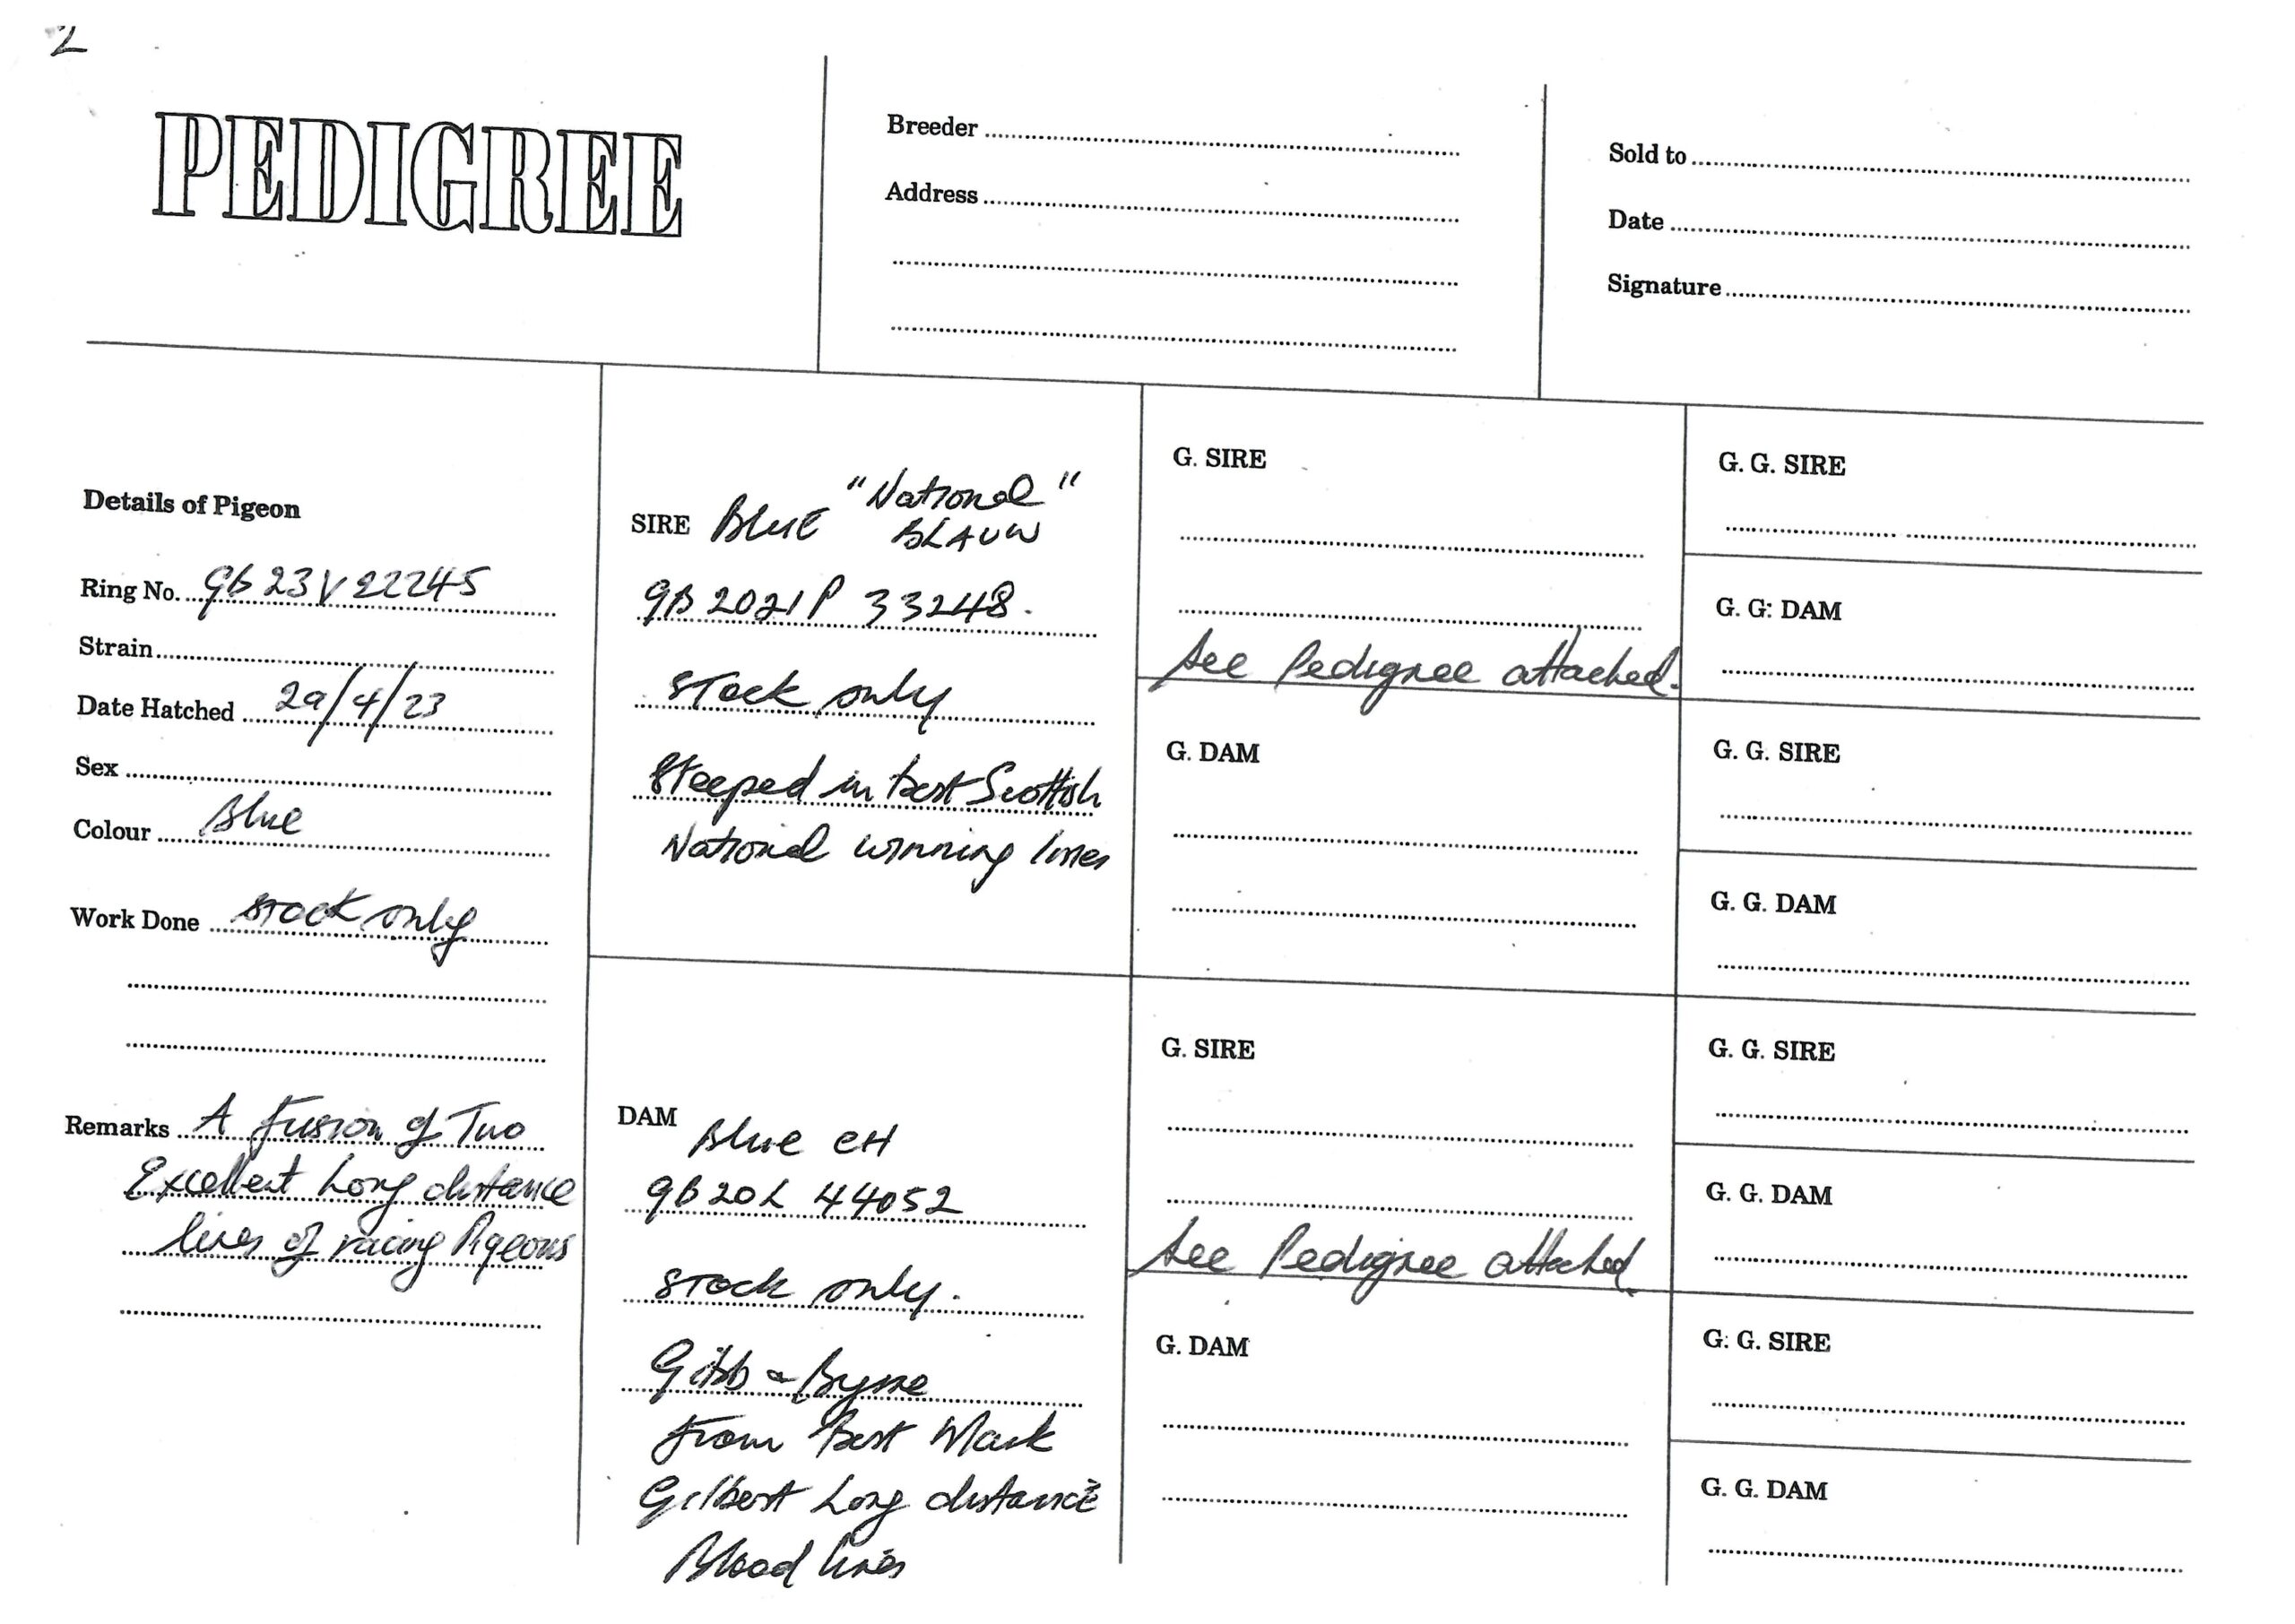 2
PEDIGREE
Breeder
Address
Sold to
Date
Signature
Details of Pigeon
Ring No. GB 23 V 22245
Strain
Date Hatched 29/4/23
Sex
Colour Blue
Work Done stock only
Remarks A fusion of Two
Excellent Long distance
lines of racing Pigeons
SIRE BLUE "National"
BLAUW
GB 2021 P 33248.
stock only
steeped in best Scottish
National winning lines
DAM
Blue CH
GB 20 L 44052
stock only.
Gibb & Byrne
from Best Mark
Gilbert Long distance
Blood lines
G. SIRE
See Pedigree attached.
G. DAM
G. SIRE
See Pedigree attached.
G. DAM
G. G. SIRE
G. G: DAM
G. G. SIRE
G. G. DAM
G. G. SIRE
G. G. DAM
G. G. SIRE
G. G. DAM